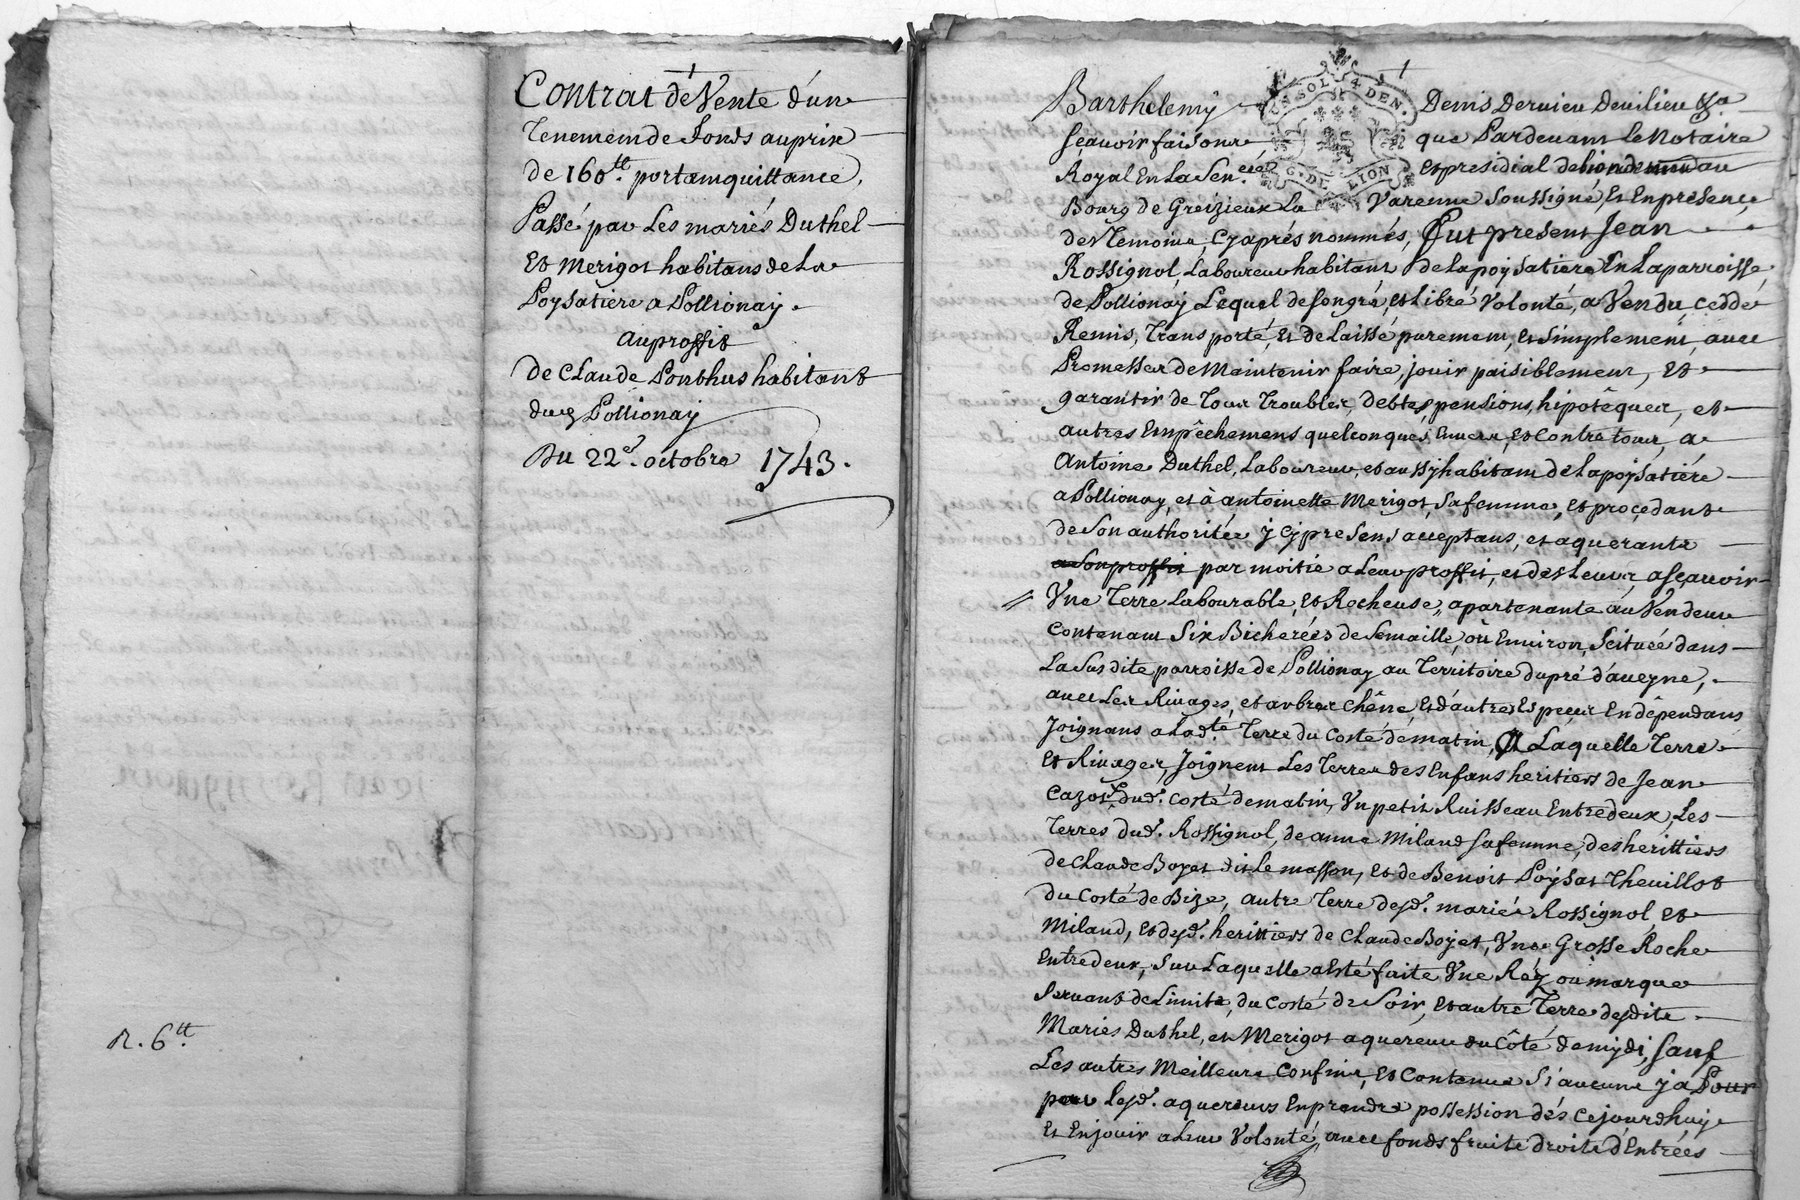 Contrat de Vente d'un
Tenement de Fonds au prix
de 160.tt portant quittance,
Passé par Les mariés Duthel
Et Merigot habitans de La
Poysatiere a Pollionay.
au proffit
de Claude Ponthus habitant
dud Pollionay
Du 22e. octobre 1743.
R. 6tt.
1
Barthelemy Denis Dervieu Devilieu &a
sçavoir faisons que Pardevant Le Notaire
Royal En La Sen.ée Et presidial de au
SOL 4 DEN.
G. DE LION
Bourg de Greizieux La Varenne Soussigné, Et En presence
des Temoins Cy aprés nommés, Fut present Jean
Rossignol, Laboureur habitant de La poysatiere En La parroisse
de Pollionay Lequel de son gré, et Libre Volonté, a Vendu, ceddé
Remis, Transporté, et delaissé purement, et Simplement, avec
Promesses de Maintenir faire, jouir paisiblement, Et
garantir de Tous Troubles, debtes, pensions, hipotêques, et
autres Empêchemens quelconques, Envers, et Contre tous, a
Antoine Duthel, Laboureur, et aussy habitant de La poysatiére
a Pollionay, et à antoinette Merigot, Sa femme, Et procedant
de Son authoritée y Cy presens acceptans, et aquerants
a Son proffit par moitié a Leur proffit, et des Leurs, a Sçavoir
// Une Terre Labourable, Et Rocheuse, apartenante au Vendeur
Contenant Six Bicherées de Semaille, oû Environ, Scituée dans
La Susdite parroisse de Pollionay au Territoire du pré d'aveyne,
avec Les Rivages, et arbres Chêne Et d'autres Especes En dêpendans
Joignans a Lad.te Terre du Costé de matin, Laquelle Terre
Et Rivages, Joignent Les Terres des Enfans heritiers de Jean
Cazot, dud. Costé de matin, Un petit Ruisseau Entre deux, Les
Terres dud. Rossignol, de anne Miland sa femme, des herittiers
de Claude Boyet dit Le masson, Et de Benoit Poysat Theuillot
du Costé de Bize, autre Terre desd. mariés Rossignol, et
Miland, Et desd. herittiers de Claude Boyet, Une Grosse Roche
Entre deux, Sur Laquelle a Esté faite Une Réz oû marque
Servant de Limite, du Costé de Soir, Et autre Terre desdits
Mariés Duthel, et Merigot aquereurs du Côté de midi, Sauf
Les autres Meilleurs Confins, Et Contenue Si aucune y a Pour
par Lesd. aquereurs En prendre possession dés ce jourd'huy
Et En jouir a Leur Volonté, avec fonds fruits droits d'Entrées